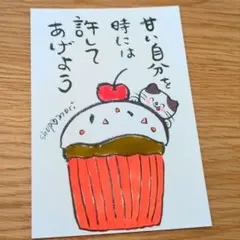 甘い自分を
時には
許して
あげよう